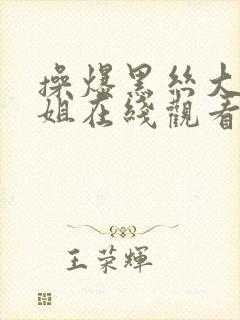 操爆黑丝大
姐在綫觀看
王荣輝